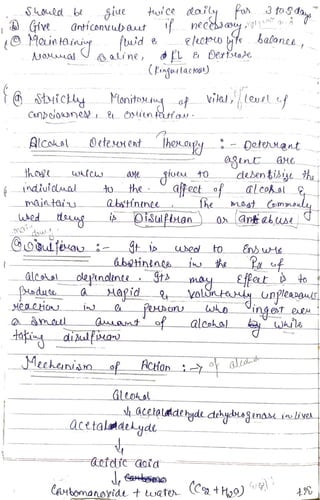 should be give twice daily for 3 to 5 days
Give anticonvulsant if necessary.
Maintaining fluid & electrolyte balance,
Normal Saline, RL & Dextrose
(Ringerlactate)
Strictly Monitoring of vital, level of
consciousness, & orientation.
Alcohol Deterrent Therapy :- Deterrant
agent are
those which are given to desentisize the
individual to the affect of alcohol &
maintain abstinence. The most commonly
used drug is Disulfiram or antabuse
Disulfiram :- It is used to Ensure
abstinence in the of
alcohol dependence. Its may Effect is to
produce a rapid & voluntarily unpleasant
reaction in a person who ingest even
a small amount of alcohol while
taking disulfiram
Mechenism of Action :-> of alcohol
Alcohol
↓ acetaldehyde dehydrogenase in liver
acetaldehyde
↓
acidic acid
↓
Carbomonoxide + water (CO2 + H2O)